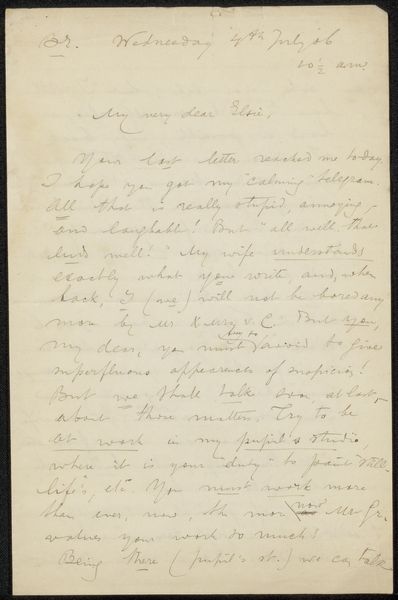 Br. Wednesday 4th July 06
10 1/2 a.m.
My very dear Elsie,
Your last letter reached me to-day.
I hope you got my "calming" telegram.
All that is really stupid, annoying,
and laughable! But "all well, that
ends well!" My wife understands
exactly what you write, and, when
back, I (we) will not be bored any
more by Mr & Mrs v. C. But you,
my dear, you must try to avoid to give
superfluous appearances of suspicion!
But we shall talk soon, at last,
about those matters. Try to be
at work in my pupil's studio,
where it is your "duty" to paint "still-
life's", etc. You must work more
than ever, now, the more now Mr Gr.
values your work so much!
Being there (pupil's st.) we can talk